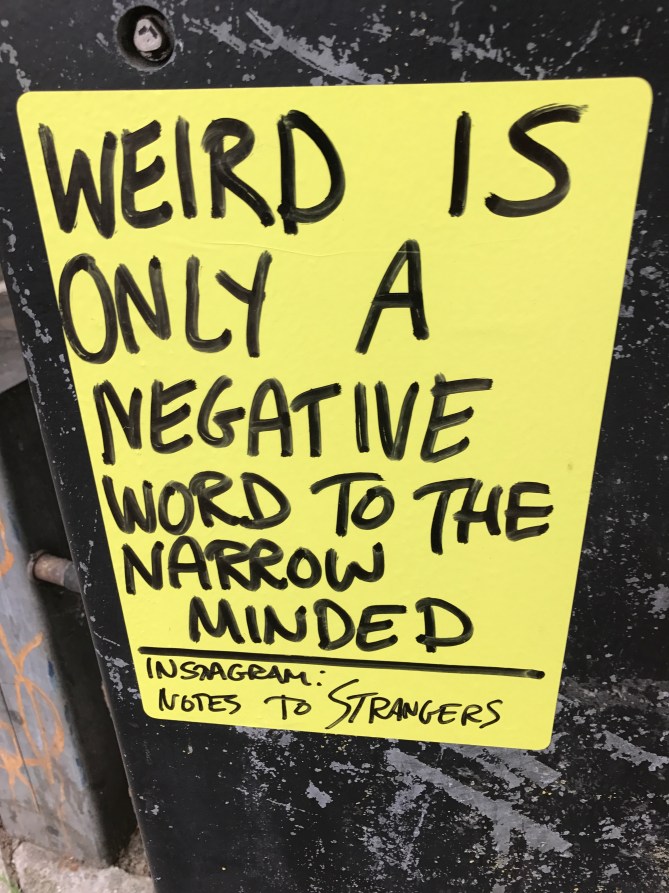 WEIRD IS
ONLY A
NEGATIVE
WORD TO THE
NARROW
MINDED
INSTAGRAM:
NOTES TO STRANGERS